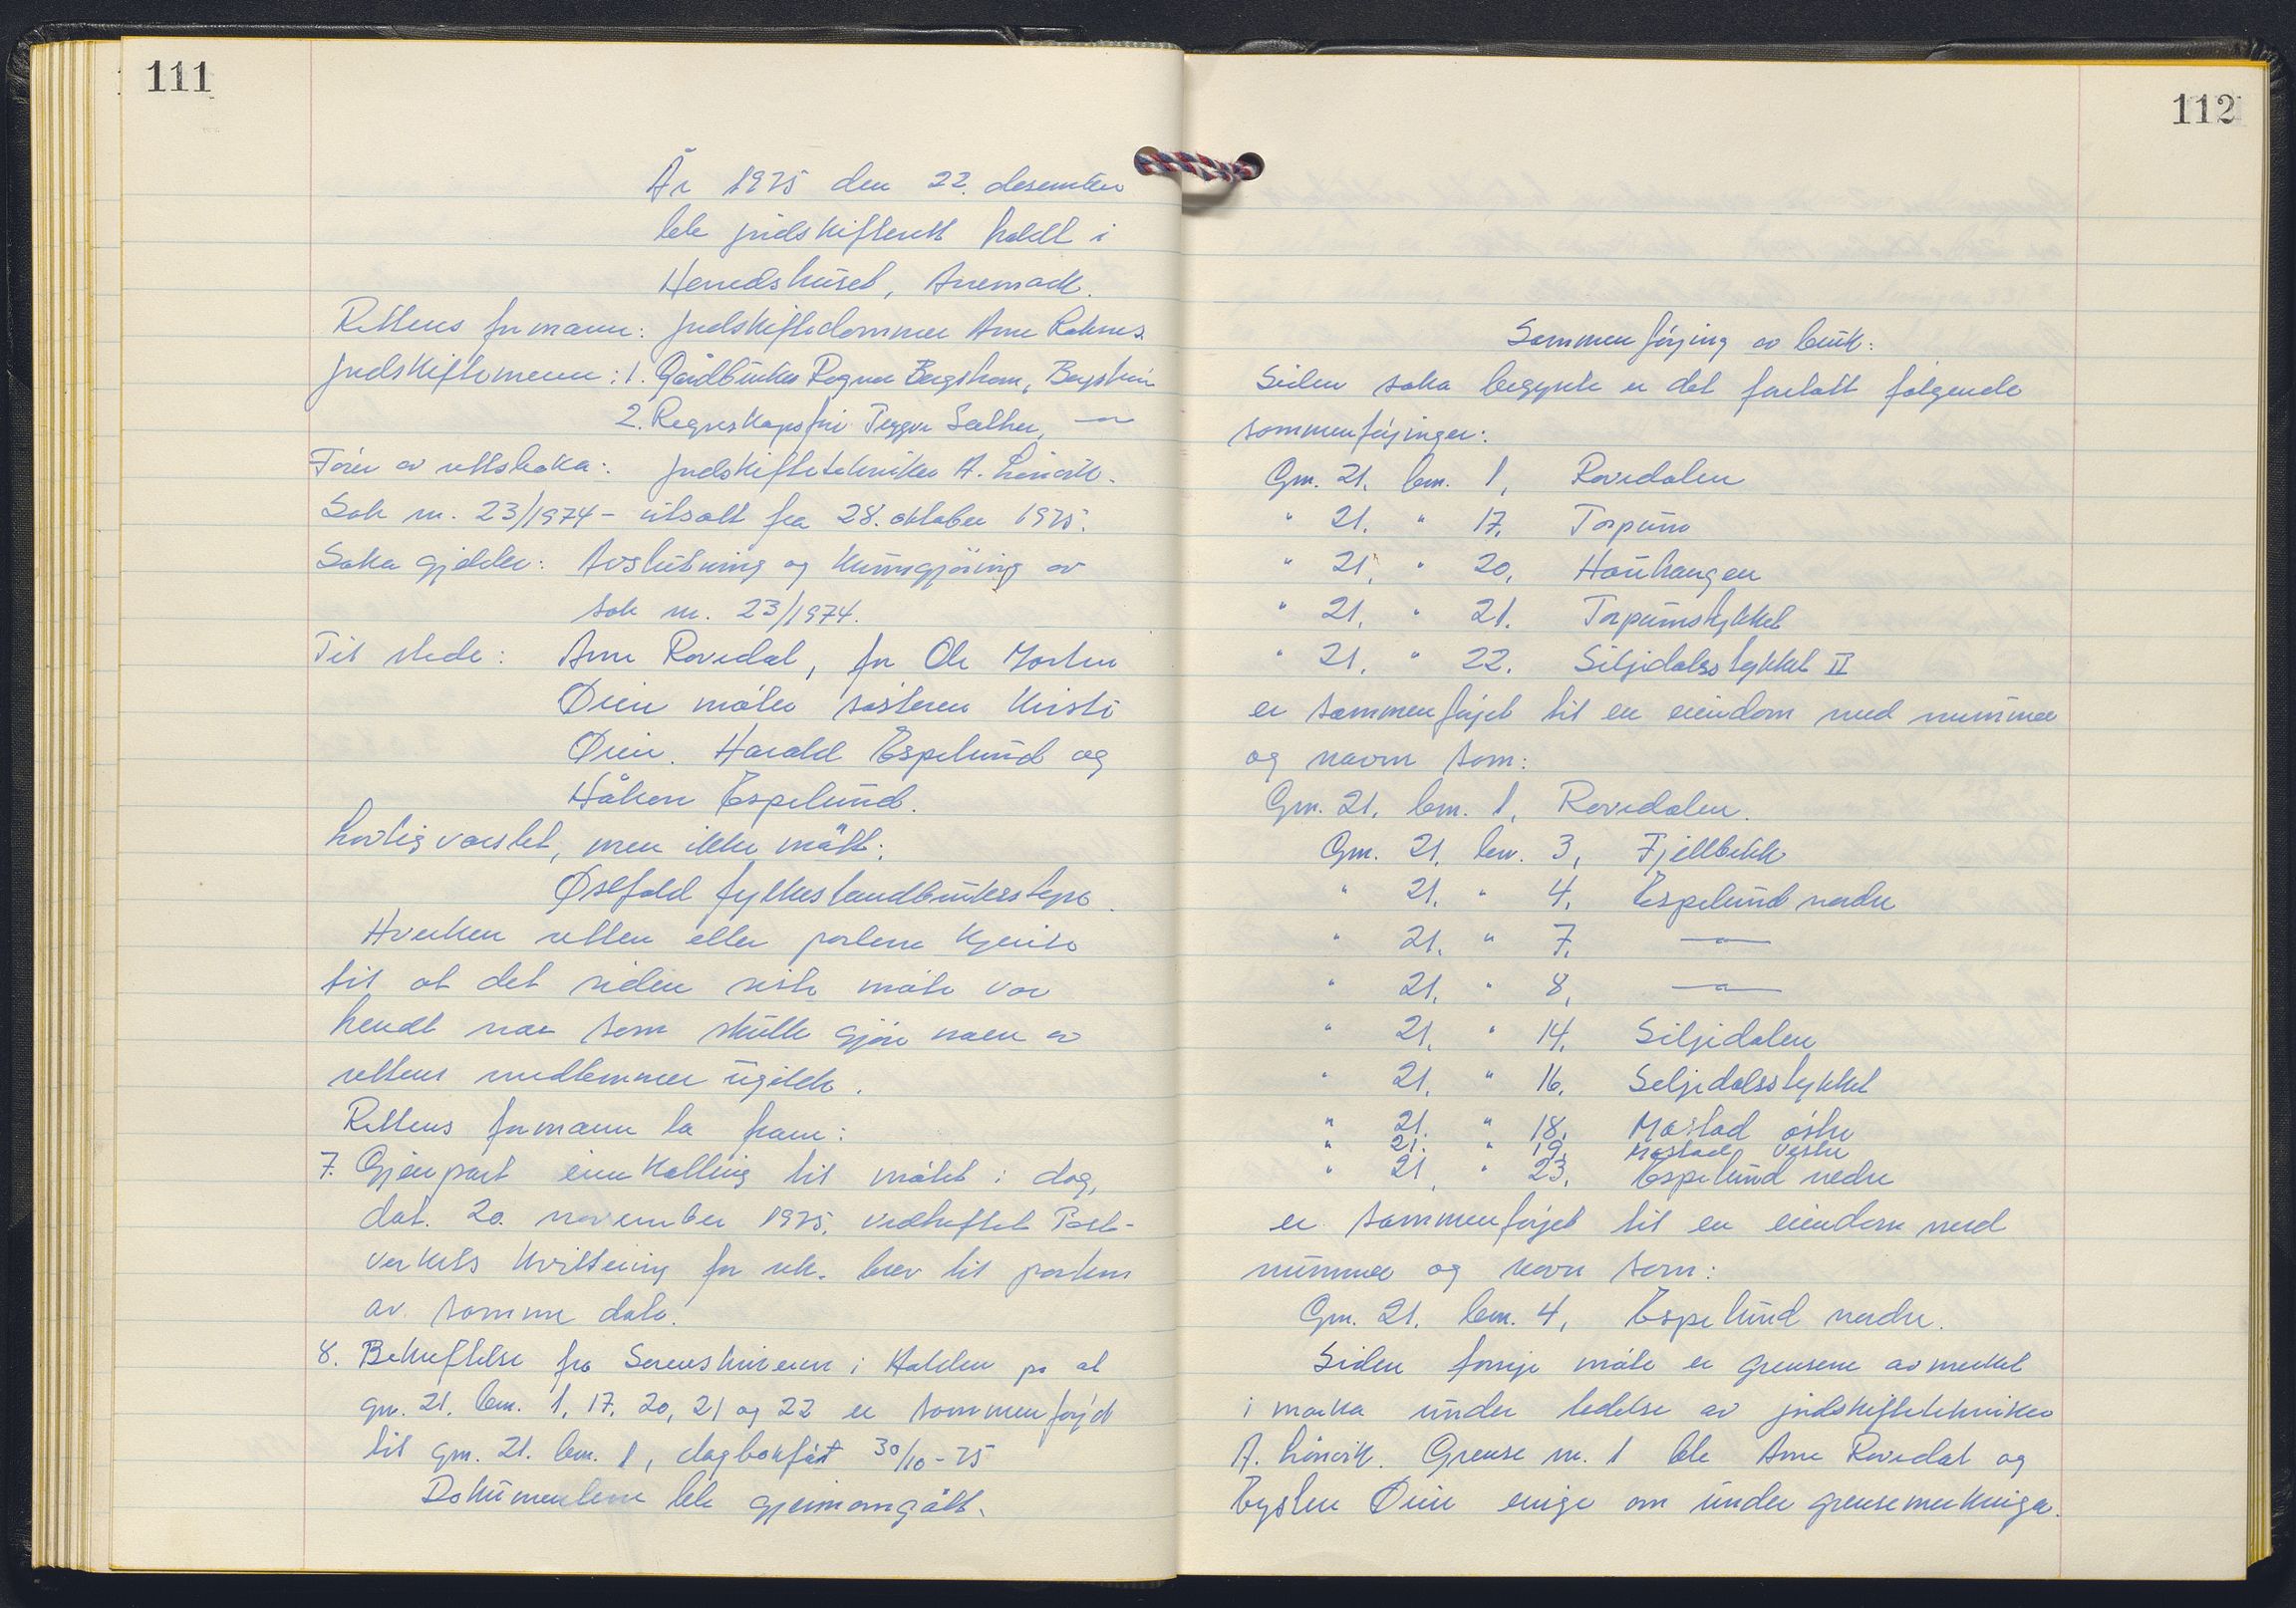 111
År 1975 den 22. desember
ble jordskifterett holdt i
Herredshuset, Aremark.
Rettens formann: Jordskiftedommer Arne
Jordskiftemenn: 1. Gårdbruker Ragnar Bergsham,
2. Regnskapsfør Trygve Sæther, — " —
Fører av rettsboka: Jordskiftetekniker A. Linvik.
Sak nr. 23/1974 - utsatt fra 28. oktober 1975.
Saka gjelder: Avslutning og kunngjøring av
sak nr. 23/1974.
Til stede: Arne Røvedal, for Ole Morten
Øien møter søsteren Kirsti
Øien. Harald Espelund og
Håkon Espelund.
Lovlig varslet, men ikke møtt:
Østfold fylkeslandbruksstyre.
Hverken retten eller partene kjente
til at det siden siste møte var
hendt noe som skulle gjøre noen av
rettens medlemmer ugilde.
Rettens formann la fram:
7. Gjenpart innkalling til møtet i dag,
dat. 20. november 1975, vedheftet Post-
verkets kvittering for rek. brev til partene
av samme dato.
8. Bekreftelse fra Sorenskriveren i Halden på at
gnr. 21. bnr. 1, 17, 20, 21 og 22 er sammenføyd
til gnr. 21. bnr. 1, dagbokført 30/10-75
Dokumentene ble gjennomgått.
112
Sammenføying av bruk:
Siden saka begynte er det foretatt følgende
sammenføyinger:
Gnr. 21. bnr. 1, Røvedalen
" 21. " 17, Torpum
" 21, " 20, Haukangen
" 21. " 21. Torpumstykket
" 21. " 22. Siljidalsstykket II
er sammenføyet til en eiendom med nummer
og navn som:
Gnr. 21. bnr. 1, Røvedalen.
Gnr. 21. bnr. 3, Fjellbekk
" 21. " 4, Espelund nedre
" 21. " 7. — " —
" 21. " 8, — " —
" 21. " 14. Siljidalen
" 21. " 16. Seljedalsstykket
" 21. " 18, Mastad østre
" 21. " 19, Mastad vestre
" 21. " 23, Espelund nedre
er sammenføyet til en eiendom med
nummer og navn som:
Gnr. 21. bnr. 4, Espelund nedre.
Siden forrige møte er grensene avmerket
i marka under ledelse av jordskiftetekniker
A. Linvik. Grense nr. 1 ble Arne Røvedal og
Eystein Øien enige om under grensemerkinga.